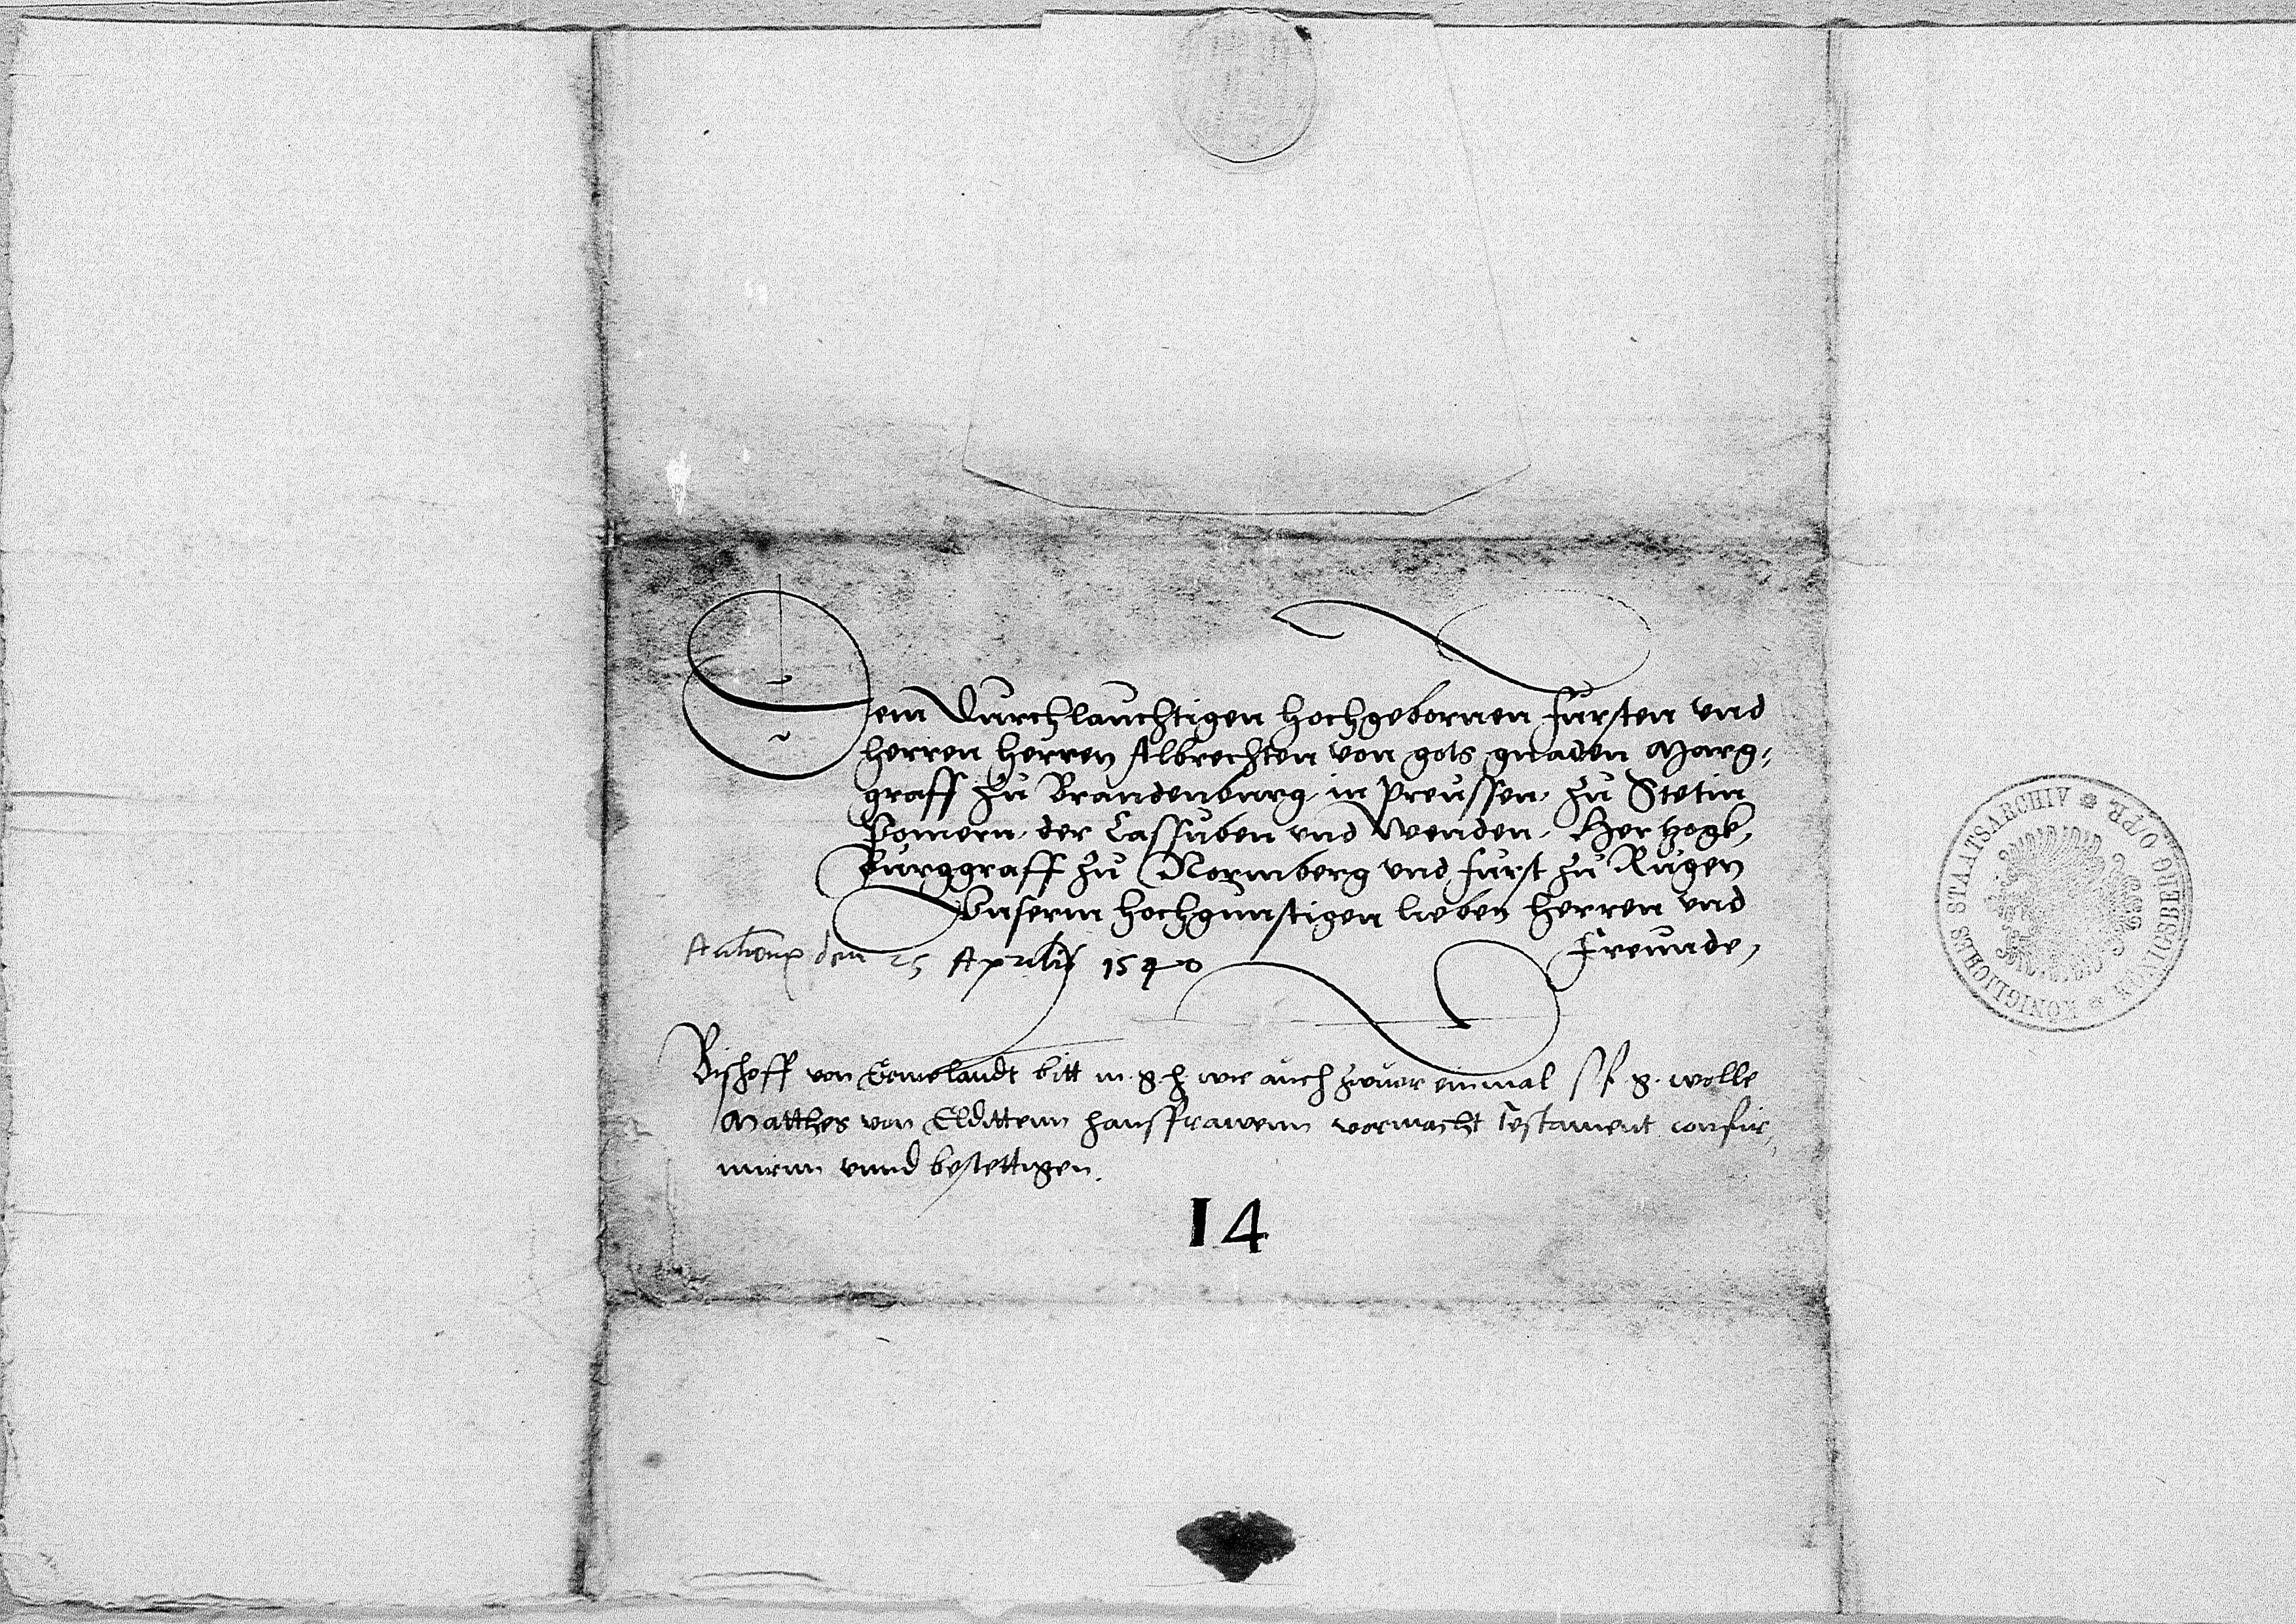 Dem Durchlauchtigen hochgebornen fursten vnd
herren herren Albrechten von gots gnaden Marg,
graff zu Brandenburg, in Preussen, zu Stetin
Pomern, der Cassuben vnd Wenden, Hertzogk,
Burggraff zu Normberg vnd furst zu Rugen
Vnserm hochgunstigen lieben herren vnd
Freunde,
den 25 Aprilis 1540
Bischoff von Ermelandt bitt m. g. h. wie auch zuuor einmal s. f. g. wolle
Matthes von Eldittenn hausfrawenn vormacht Testament confir,
mirnn vnnd bestettigen.
14
KÖNIGLICHES STAATSARCHIV
KÖNIGSBERG O/PR.